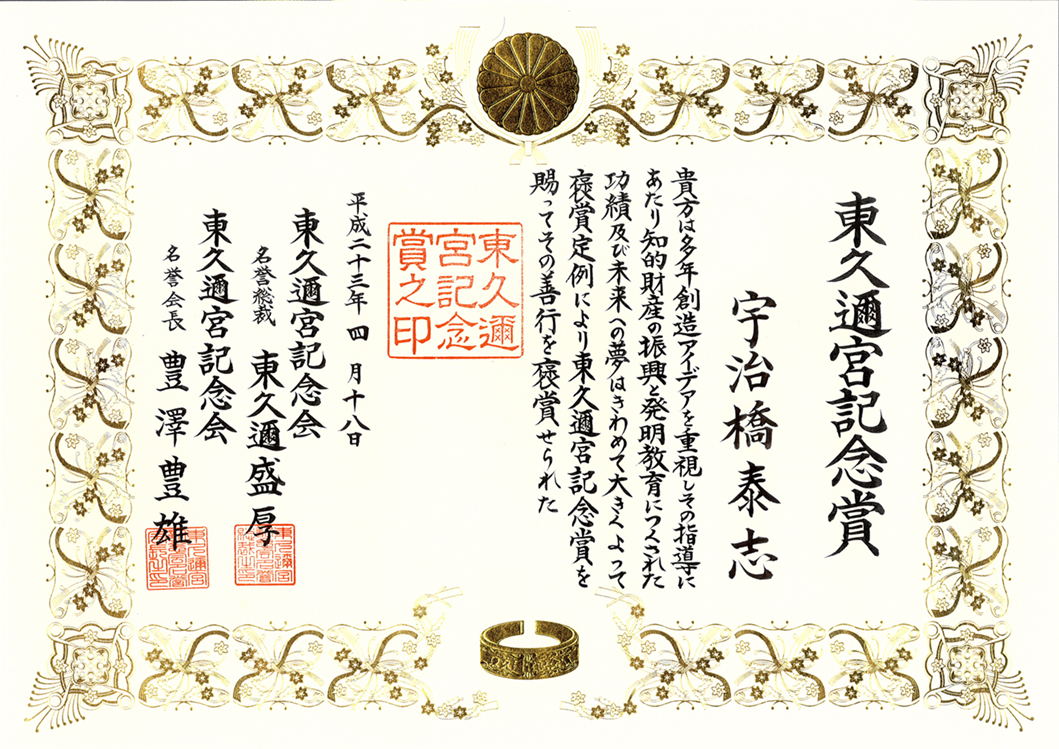 東久邇宮記念賞
宇治橋泰志
貴方は多年創造アイデアを重視しその指導に
あたり知的財産の振興と発明教育につくされた
功績及び未来への夢はきわめて大きくよって
褒賞定例により東久邇宮記念賞を
賜ってその善行を褒賞せられた
東久邇
宮記念
賞之印
平成二十三年四月十八日
東久邇宮記念会
名誉総裁 東久邇盛厚
東久邇宮記念会
名誉会長 豊澤豊雄